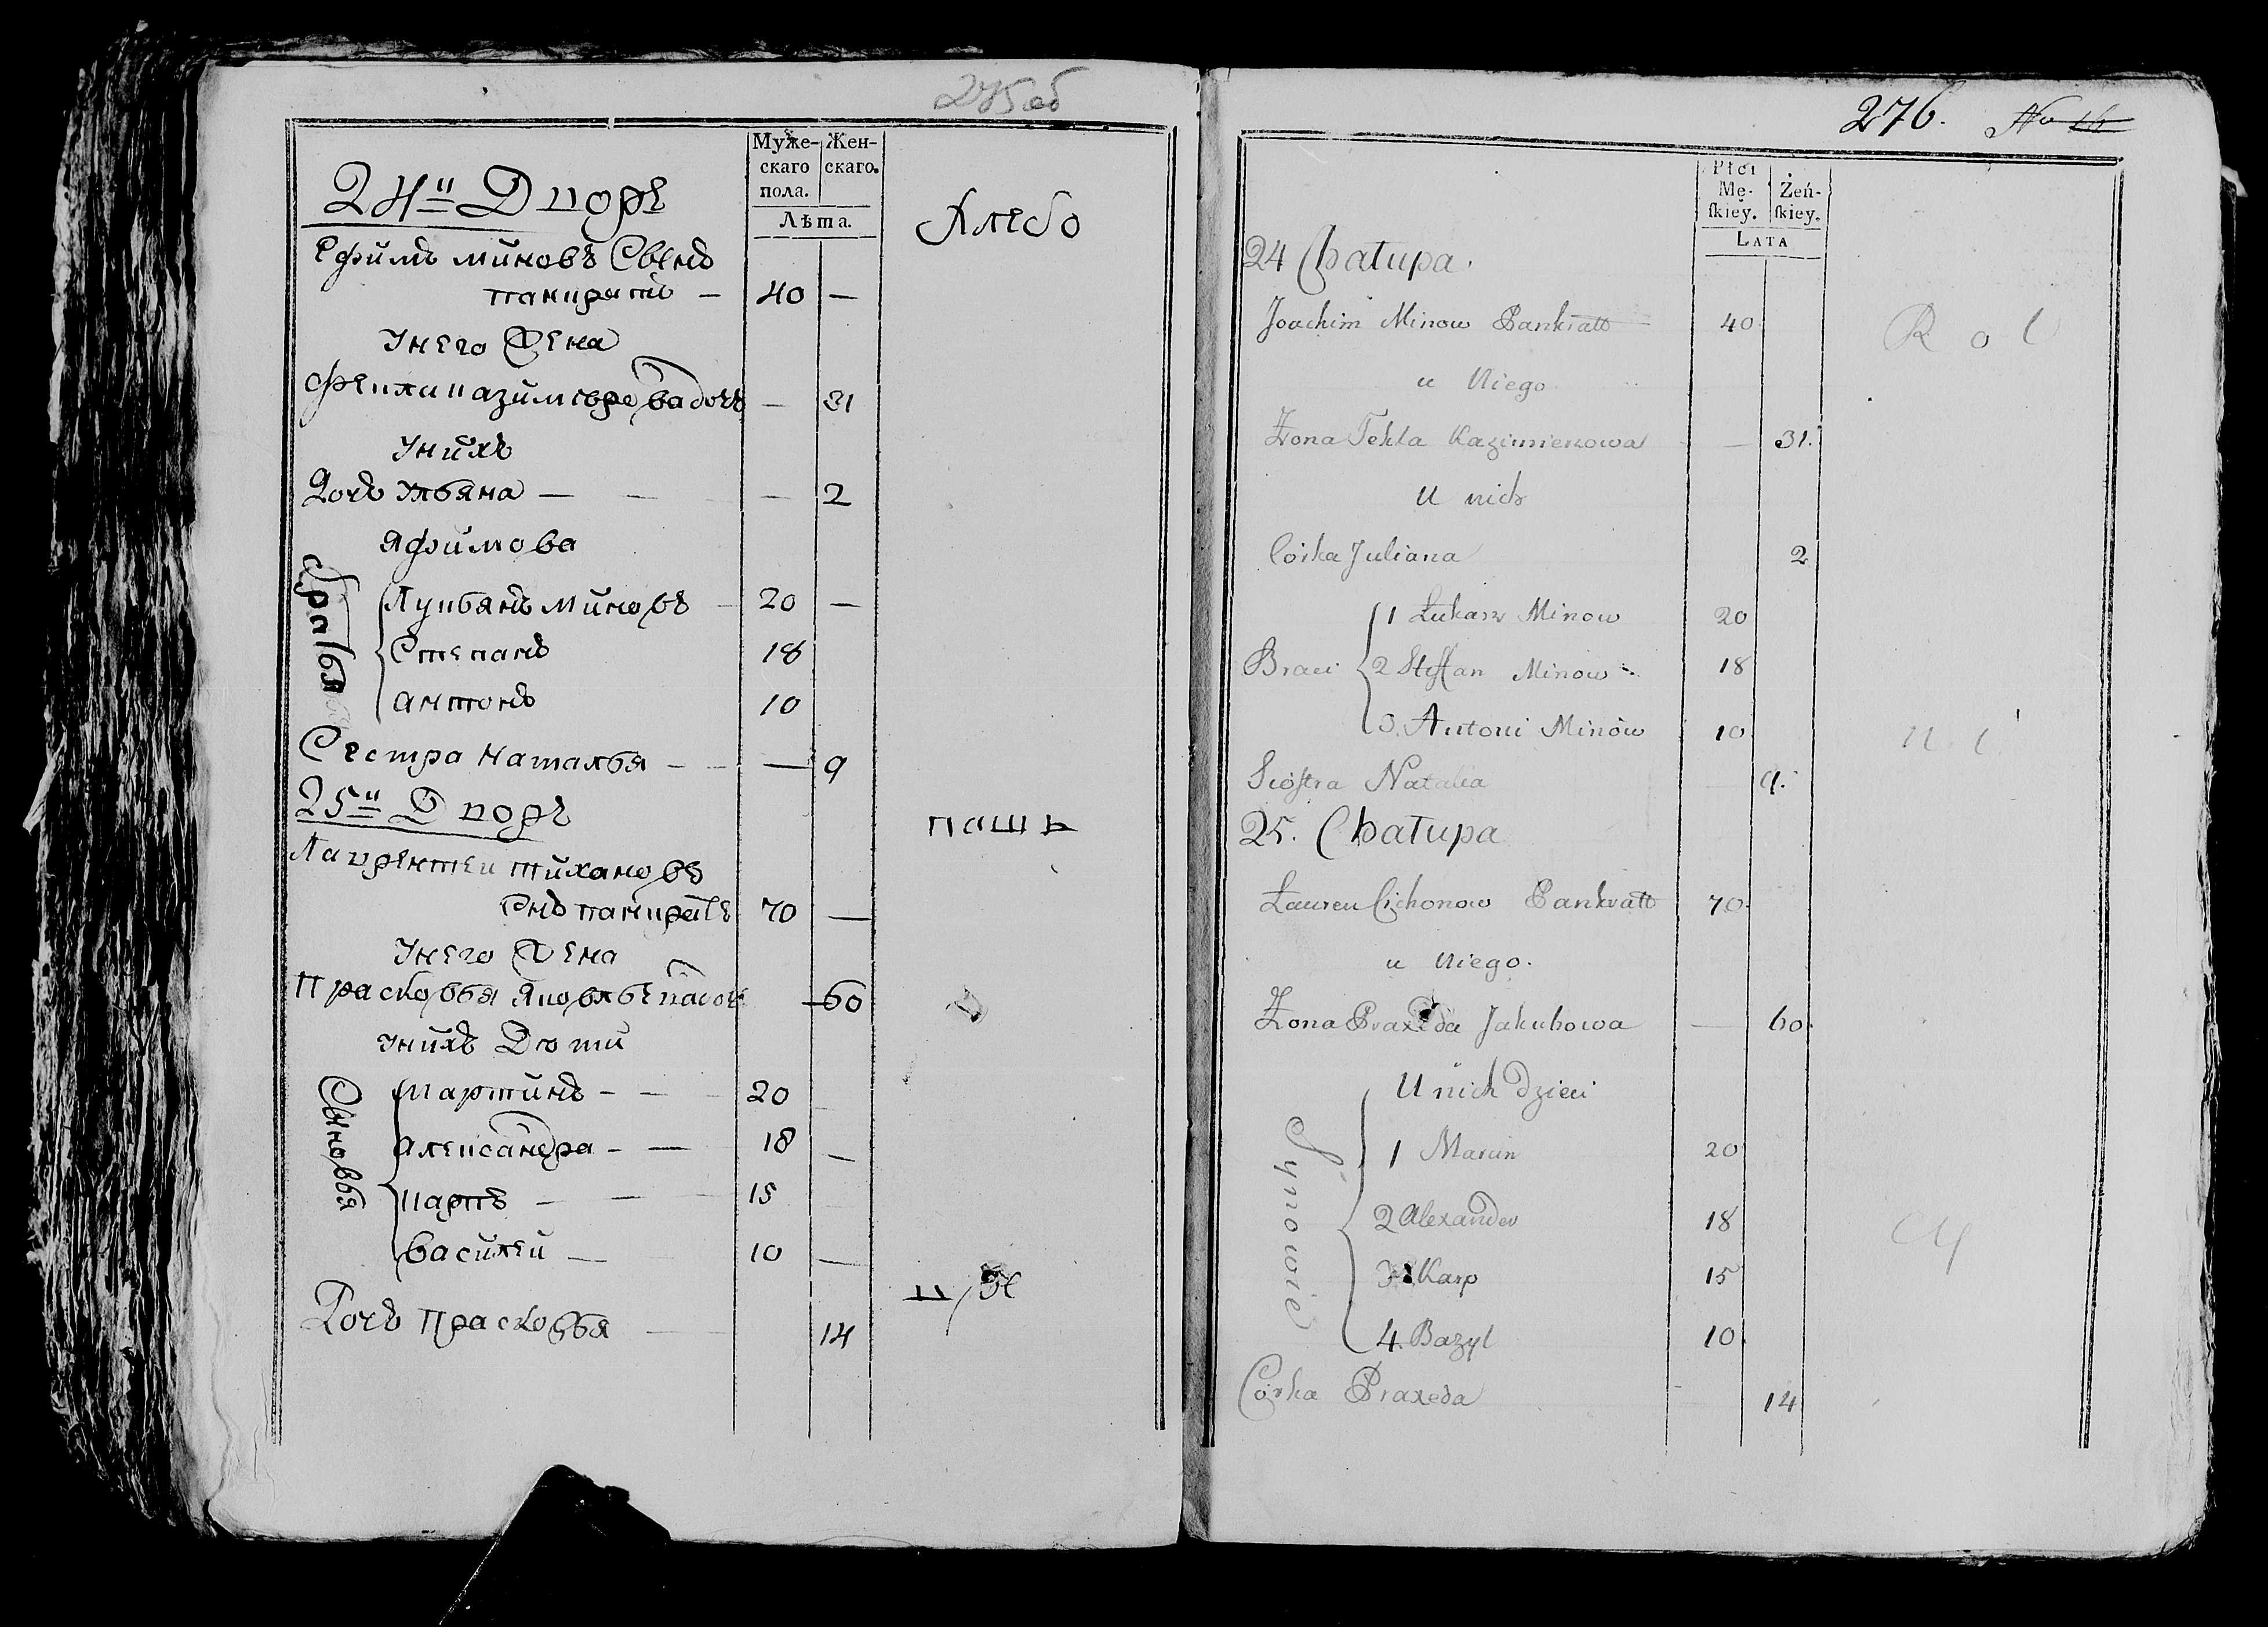 275об
Муже-
скаго
пола.
Жен-
скаго.
Лѣта.
24й Дворъ
Хлебо
Ефимъ миновъ Сынъ
панкратъ — 40 —
Унего Жена
Фекла казимерова дочь — 31
Унихъ
Дочь Ульяна — — — 2
Яфимова
Братья
Лукьянъ миновъ — 20 —
Степанъ 18
антонъ 10
Сестра наталья — — — 9
25й Дворъ
паше
Лаврентеи тихановъ
Снъ панкратъ 70 —
Унего Жена
Прасковья Яковлева дочь — 60
унихъ Дѣти
Сыновья
мартинъ — — 20 —
александра — — 18 —
карпъ — — 15
василеи — 10 —
Дочь прасковья — 14
276. No 16
Płci
Mę-
ſkiey.
Żeń-
ſkiey.
LATA
24 Chałupa.
Joachim Minow Pankratt 40
R o l
u Niego
Żona Tekla Kazimierzowa — 31.
U nich
Corka Juliana 2
Braci
1 Łukasz Minow 20
2 Steffan Minow 18
3. Antoni Minow 10
n i
Siostra Natalia — 9.
25. Chałupa
Lauren Cichonow Pankratt 70.
u Niego.
Żona Praxeda Jakubowa — 60.
U nich dzieci
Synowie
1 Marcin 20
2 Alexander 18
cy
3 Karp 15
4. Bazyl 10.
Córka Praxeda 14